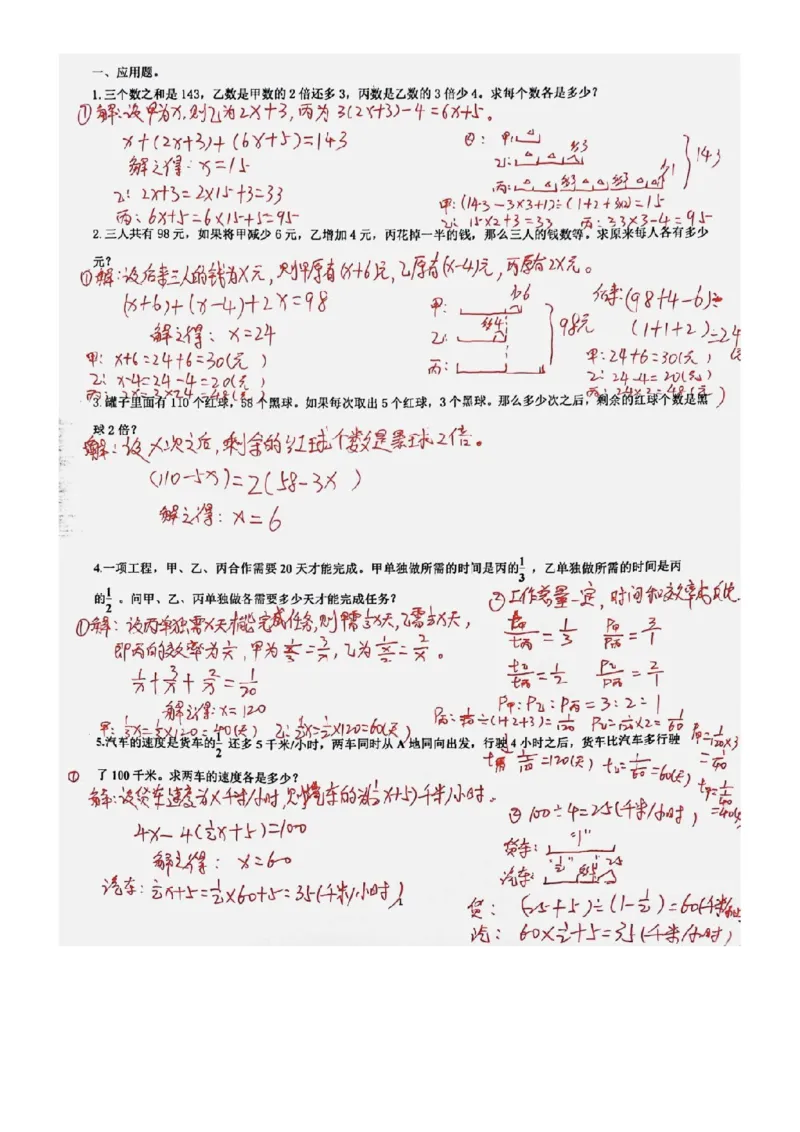 一、应用题。
1.三个数之和是 143，乙数是甲数的 2 倍还多 3，丙数是乙数的 3 倍少 4。求每个数各是多少？
①解:设甲为x,则乙为2x+3,丙为 3(2x+3)-4=6x+5。
x+(2x+3)+(6x+5)=143
解之得: x=15
乙: 2x+3=2×15+3=33
丙: 6x+5=6×15+5=95
②: 甲:
乙: 多3
丙: 多3 多3
143
甲: (143-3-3×3+4)÷(1+2+3×2)=15
乙: 15×2+3=33 丙: 33×3-4=95
2.三人共有 98 元，如果将甲减少 6 元，乙增加 4 元，丙花掉一半的钱，那么三人的钱数等。求原来每人各有多少
元？
①解:设后来三人的钱为x元,则甲原有(x+6)元,乙原有(x-4)元,丙原有2x元。
(x+6)+(x-4)+2x=98
解之得: x=24
甲: x+6=24+6=30(元)
乙: x-4=24-4=20(元)
丙: 2x=2×24=48(元)
甲: 多6
乙: 少4
丙:
98元
(98+4-6)÷
(1+1+2)=24
甲:24+6=30(元)
乙: 24-4=20(元)
丙: 24×2=48(元)
3.罐子里面有 110 个红球，58 个黑球。如果每次取出 5 个红球，3 个黑球。那么多少次之后，剩余的红球个数是黑
球 2 倍？
解:设x次之后,剩余的红球个数是黑球2倍。
(110-5x)=2(58-3x)
解之得: x=6
4.一项工程，甲、乙、丙合作需要 20 天才能完成。甲单独做所需的时间是丙的1/3，乙单独做所需的时间是丙
的1/2。问甲、乙、丙单独做各需要多少天才能完成任务？
①解:设丙单独需x天才能完成任务,则甲需1/3x天,乙需1/2x天,
即丙的效率为1/x,甲为1/(x/3)=3/x,乙为1/(x/2)=2/x。
1/x+3/x+2/x=1/20
解之得:x=120
甲: 1/3x=1/3×120=40(天) 乙: 1/2x=1/2×120=60(天)
②工作总量一定,时间和效率成反比.
t甲/t丙=1/3 P甲/P丙=3/1
t乙/t丙=1/2 P乙/P丙=2/1
P甲:P乙:P丙=3:2:1
P丙=1/20÷(1+2+3)=1/120 P乙=1/120×2=1/60 P甲=1/120×3
=1/40
t丙=1/(1/120)=120(天) t乙=1/(1/60)=60(天) t甲=1/(1/40)
=40(天
5.汽车的速度是货车的1/2还多 5 千米/小时，两车同时从 A 地同向出发，行驶 4 小时之后，货车比汽车多行驶
了 100 千米。求两车的速度各是多少？
①
解:设货车速度为x千米/小时,则汽车的为(1/2x+5)千米/小时。
4x-4(1/2x+5)=100
解之得: x=60
汽车: 1/2x+5=1/2×60+5=35(千米/小时)
② 100÷4=25(千米/小时)
货车: "1"
汽车: "1/2" 多5 25
货: (25+5)÷(1-1/2)=60(千米/小时
汽: 60×1/2+5=35(千米/小时)